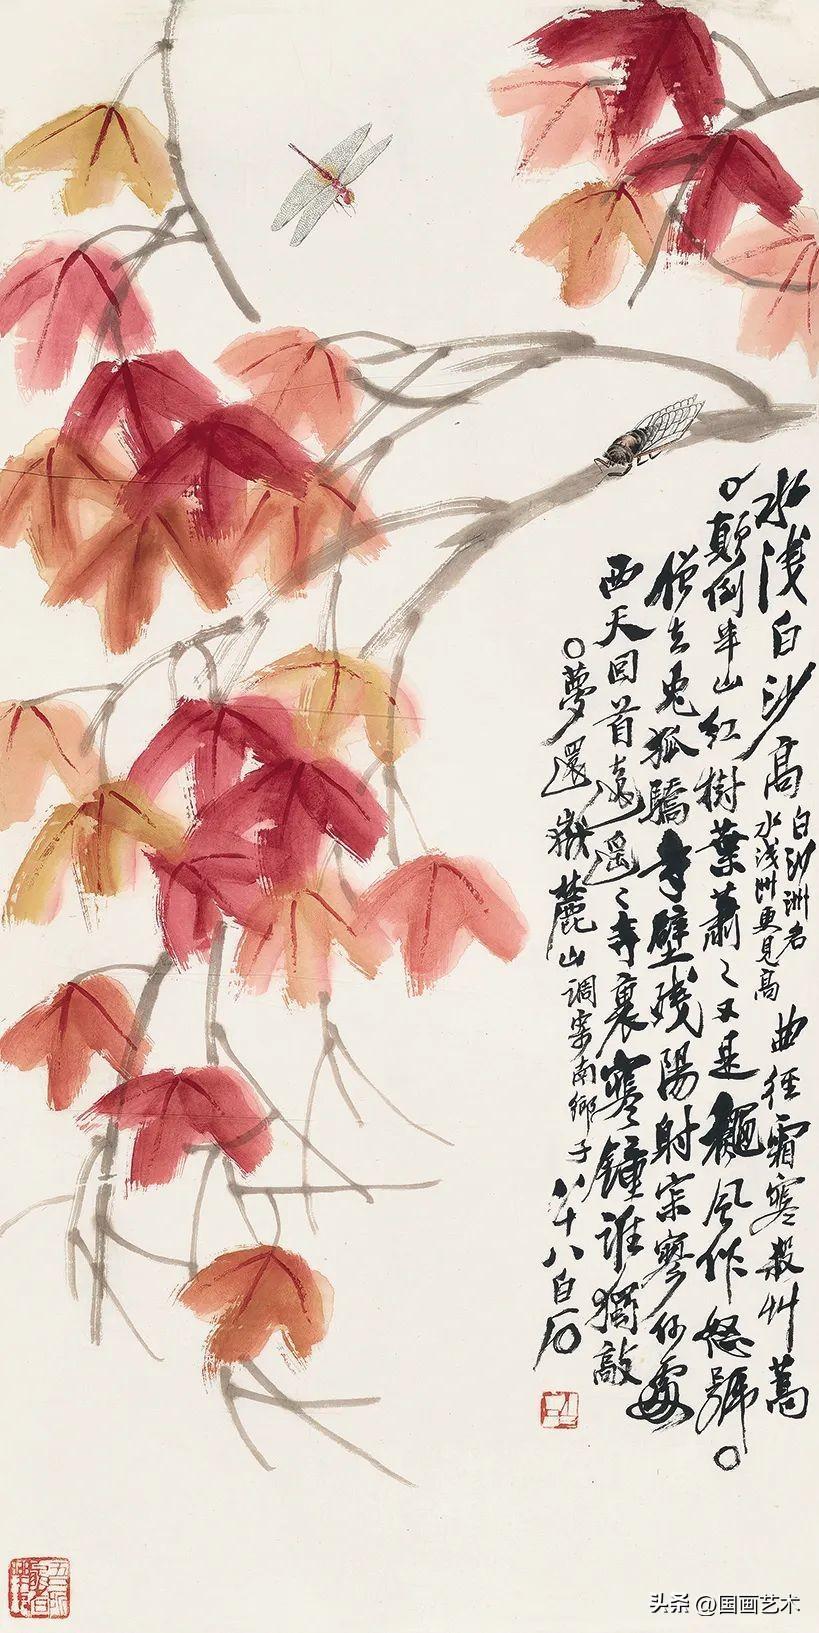 水淺白沙高
白沙洲者
水淺洲更見高
曲徑霜寒殺艸蒿
○顛倒半山紅樹葉蕭〻又是龝風作怒號○
僧去兔狐驕半壁殘陽射寂寥何處
西天回首遠遙〻寺裏寒鐘誰獨敲
○夢還嶽麓山調寄南鄉子八十八白石
头条 @国画艺术